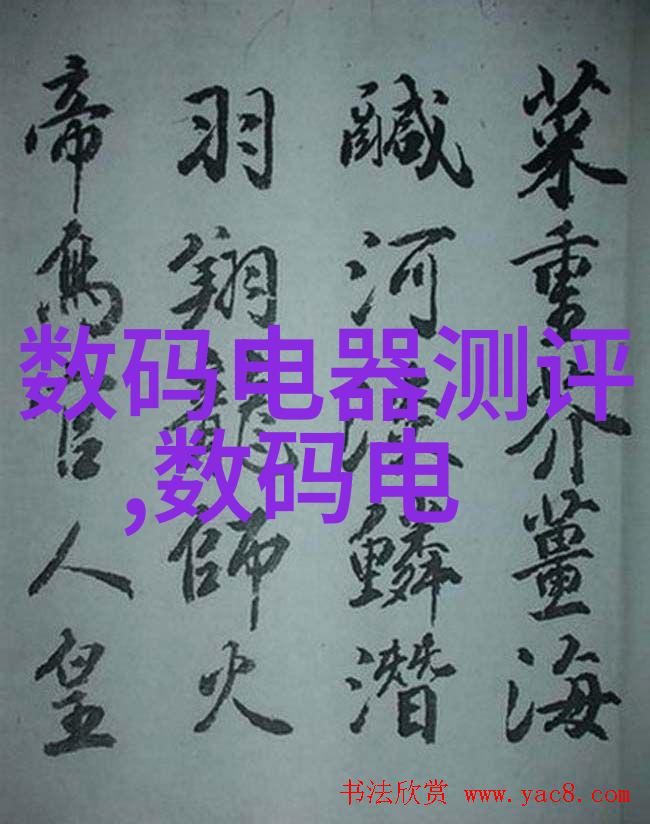 菜重芥薑海
鹹河淡鱗潛
羽翔龍師火
帝鳥官人皇
数码电器测评
,数码电
书法欣赏 www.yac8.com